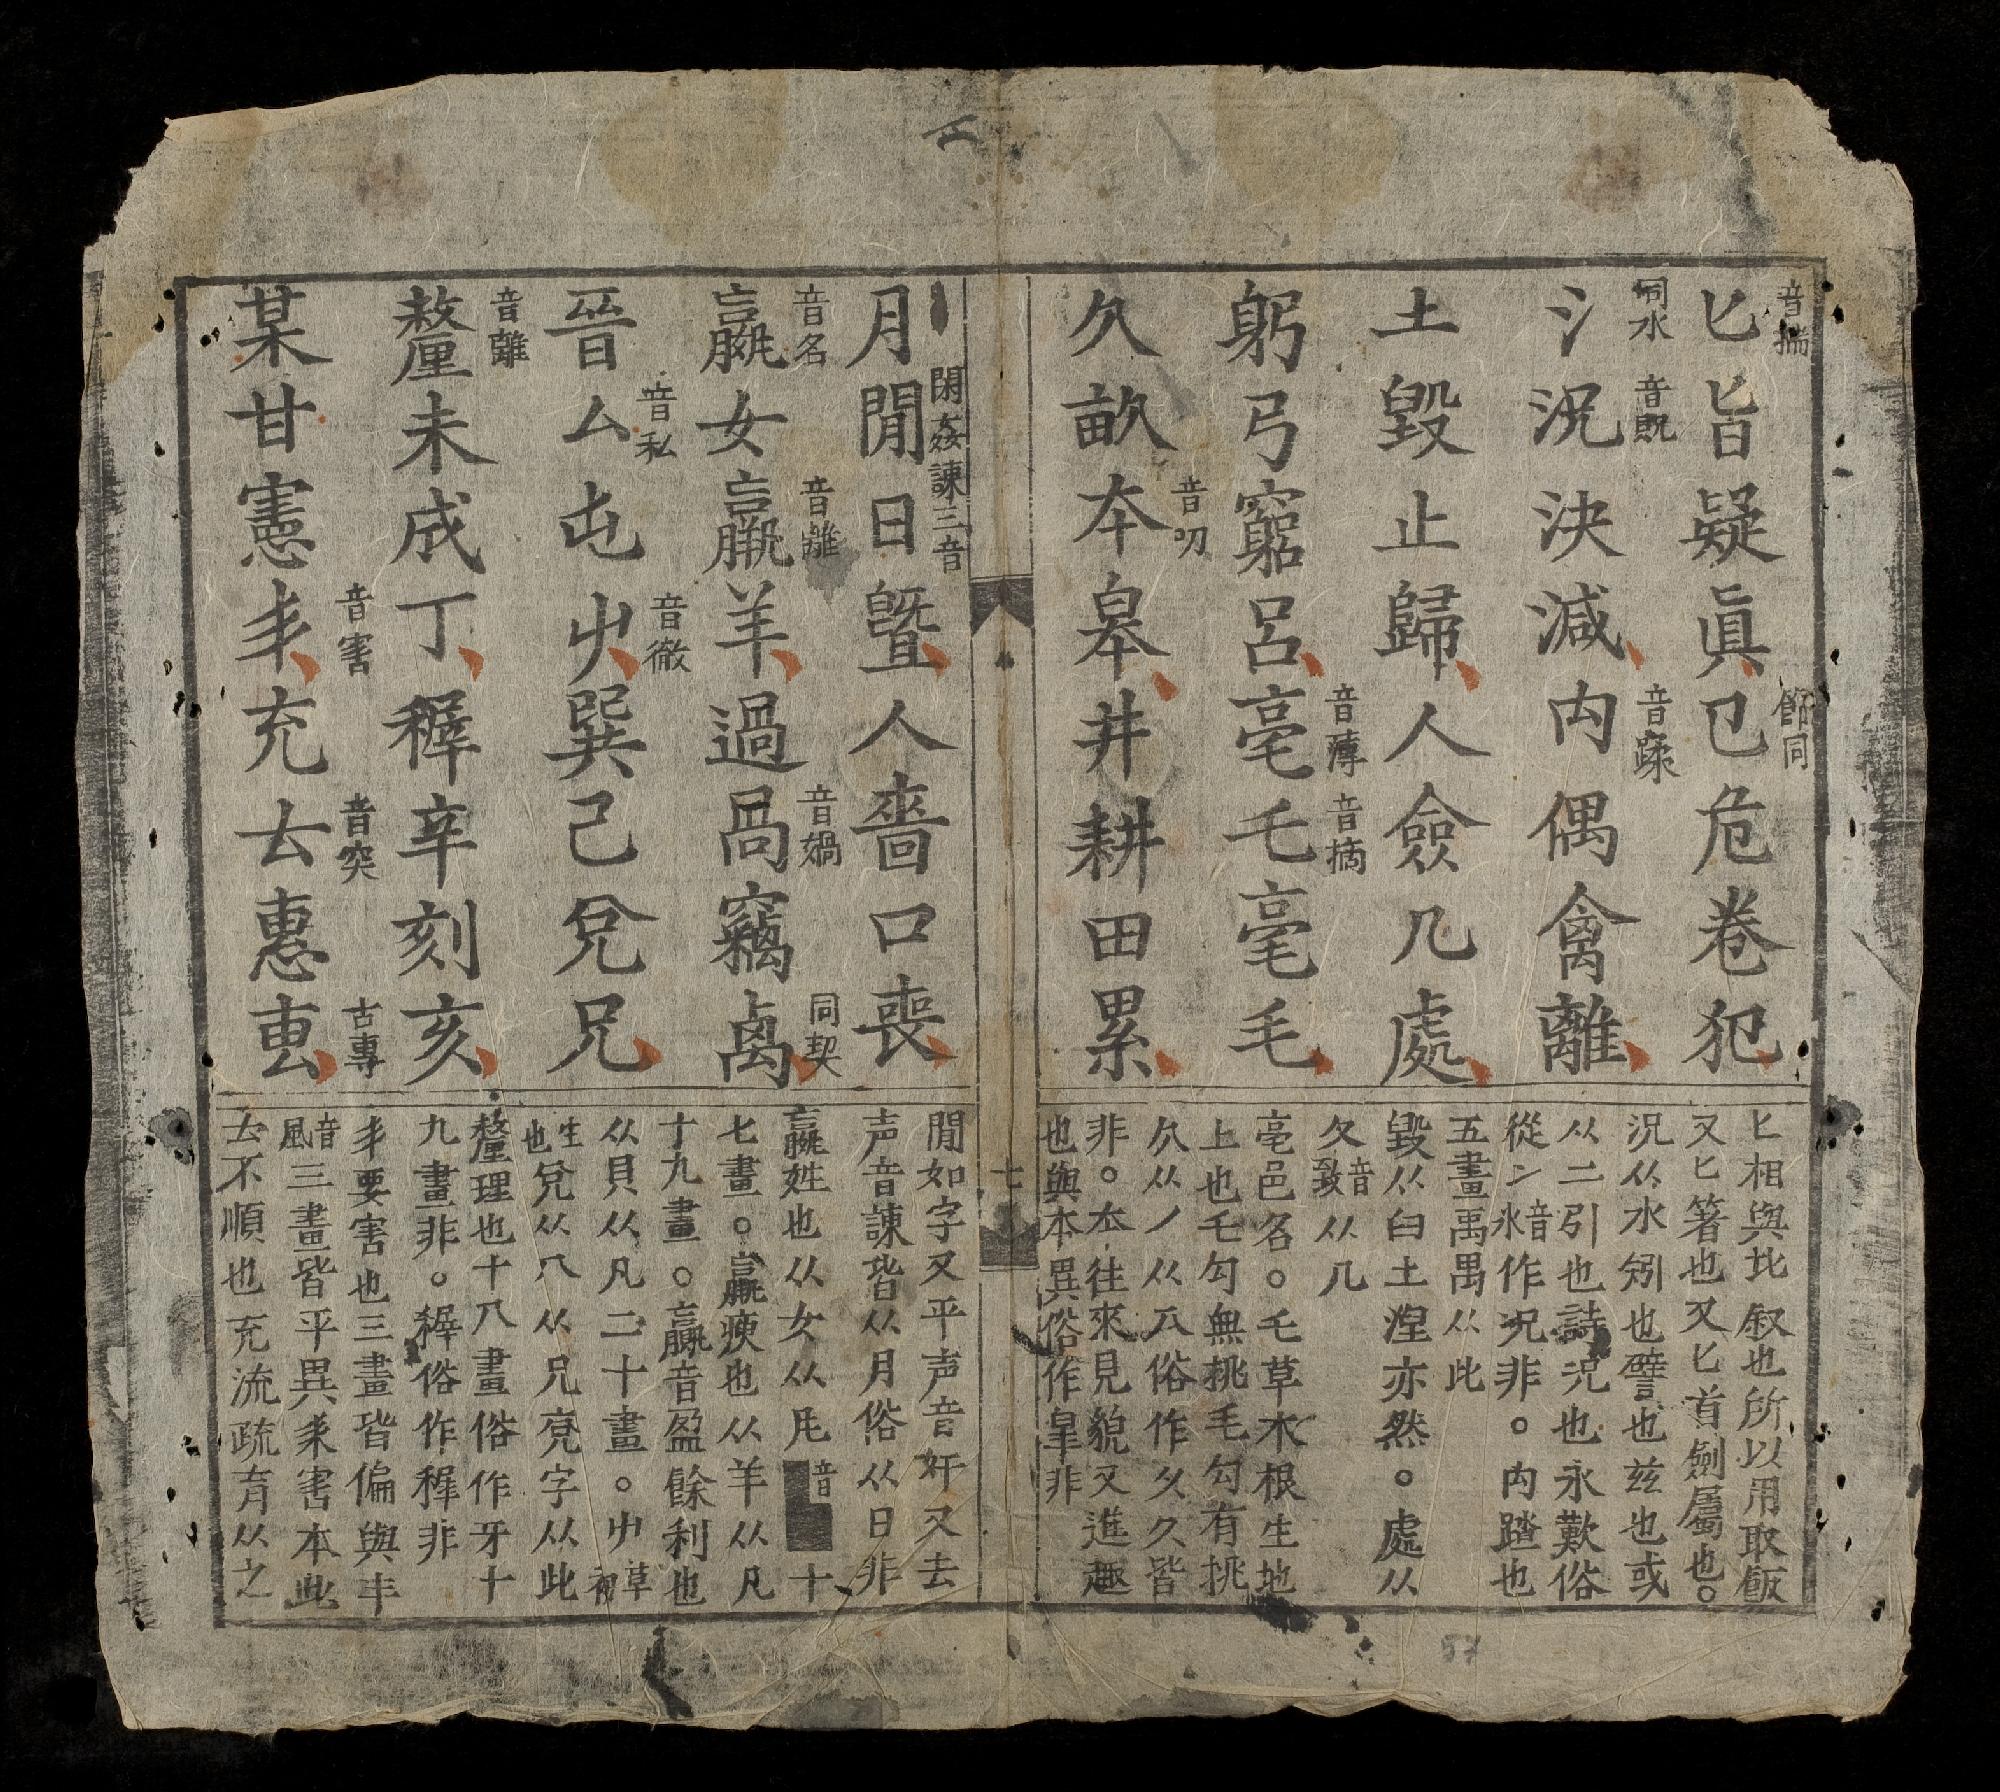 匕旨疑眞㔾危卷犯
音揣
節同
氵況決減禸偶禽離
同水
音旣
音蹂
土毀止歸人僉几處
躬弓窮呂亳乇毫毛
音薄
音摘
久畝夲皋井耕田累
音叨
月閒日曁人嗇口喪
閑姦諫三音
嬴女羸羊過咼竊卨
音名
音離
音媧
同契
晉厶屯屮巽己兌兄
音私
音徹
釐未成丁穉辛刻亥
音離
某甘憲丯充𠫓惠叀
音害
音突
古專
匕相與比叙也所以用取飯
又匕箸也又匕首劍屬也。
況从水矧也譬也玆也或
从二引也詩況也永歎俗
從冫音氷作况非。禸踏也
五畫禹禺从此
毀从臼土涅亦然。處从
夂音致从几
亳邑名。乇草木根生地
上也乇勾無挑毛勾有挑
久从丿从乀俗作夂久皆
非。夲往來見貌又進趣
也與本異俗作皐非
七
閒如字又平声音奸又去
声音諫皆从月俗从日非
嬴姓也从女从凡音十
七畫。羸瘐也从羊从凡
十九畫。贏音盈餘利也
从貝从凡二十畫。屮草初
生也兌从八从兄竞字从此
釐理也十八畫俗作牙十
九畫非。穉俗作稺非
丯要害也三畫皆偏與丰
音風三畫皆平異耒害本此
𠫓不順也充流疏育从之
57